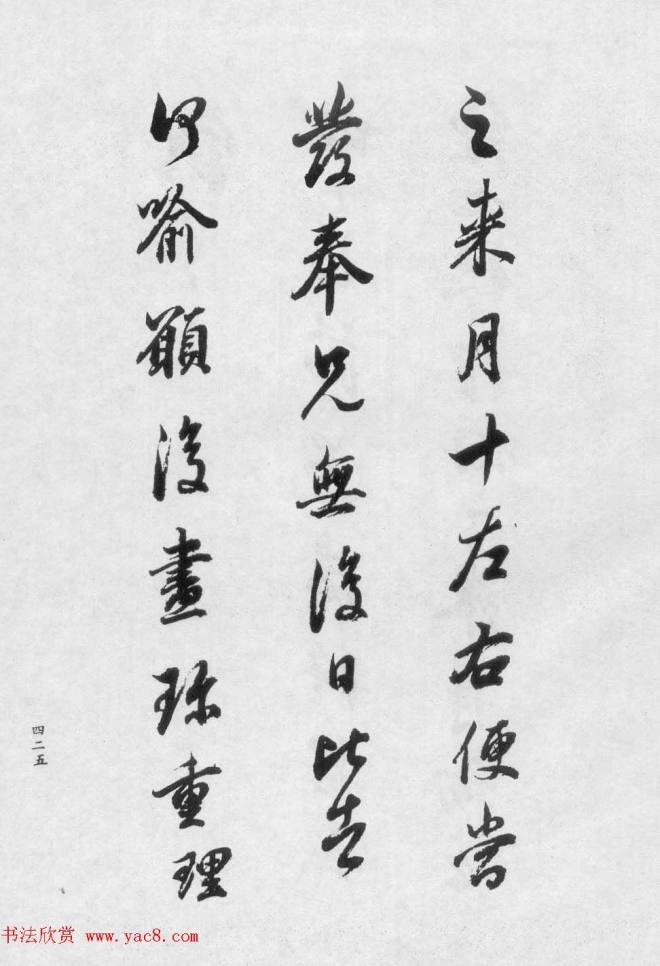 之来月十左右便當
發奉見無復日比告
何喻願復盡珎重理
四二五
书法欣赏 www.yac8.com